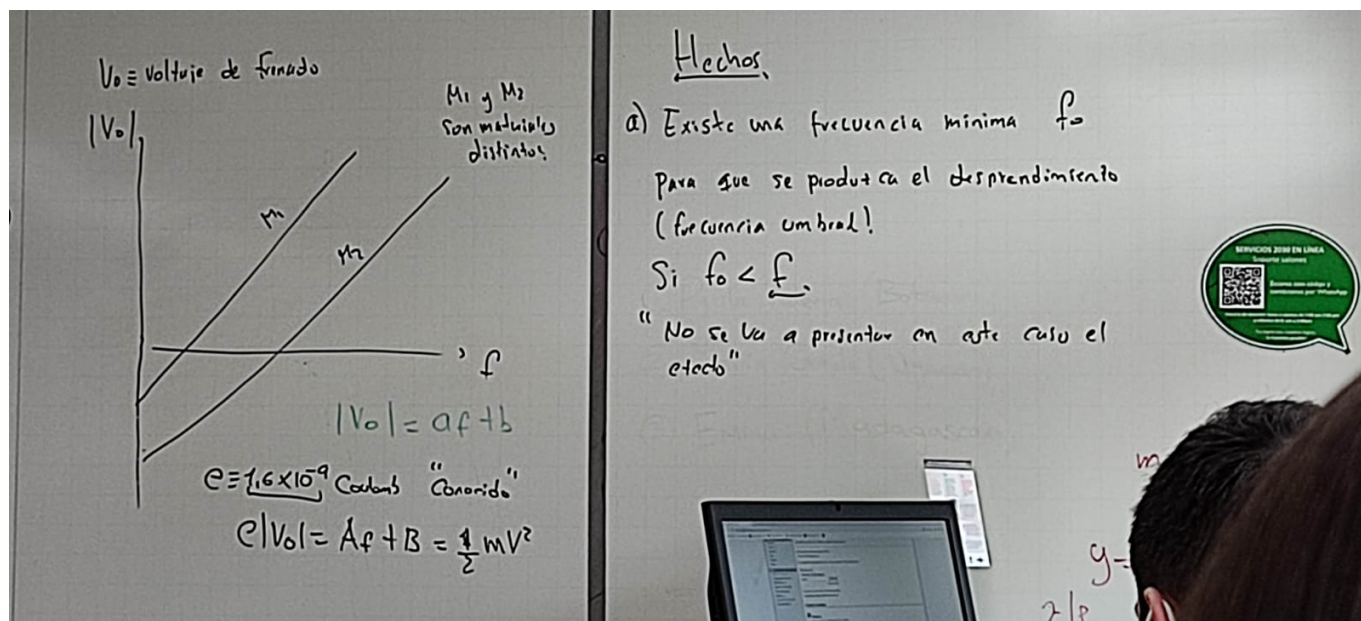 V₀ ≡ Voltaje de frenado
|V₀|
M₁ y M₂
son materiales
distintos.
M₁
M₂
f
|V₀| = af + b
e ≡ 1,6×10⁻⁹ Coulomb "Conocido"
e|V₀| = Af + B = ½ mV²
Hechos
a) Existe una frecuencia minima f₀
Para que se produzca el desprendimiento
(frecuencia umbral!
Si f₀ < f.
"No se va a presentar en este caso el
efecto"
SERVICIOS 2030 EN LÍNEA
Soporte salones
m
y=